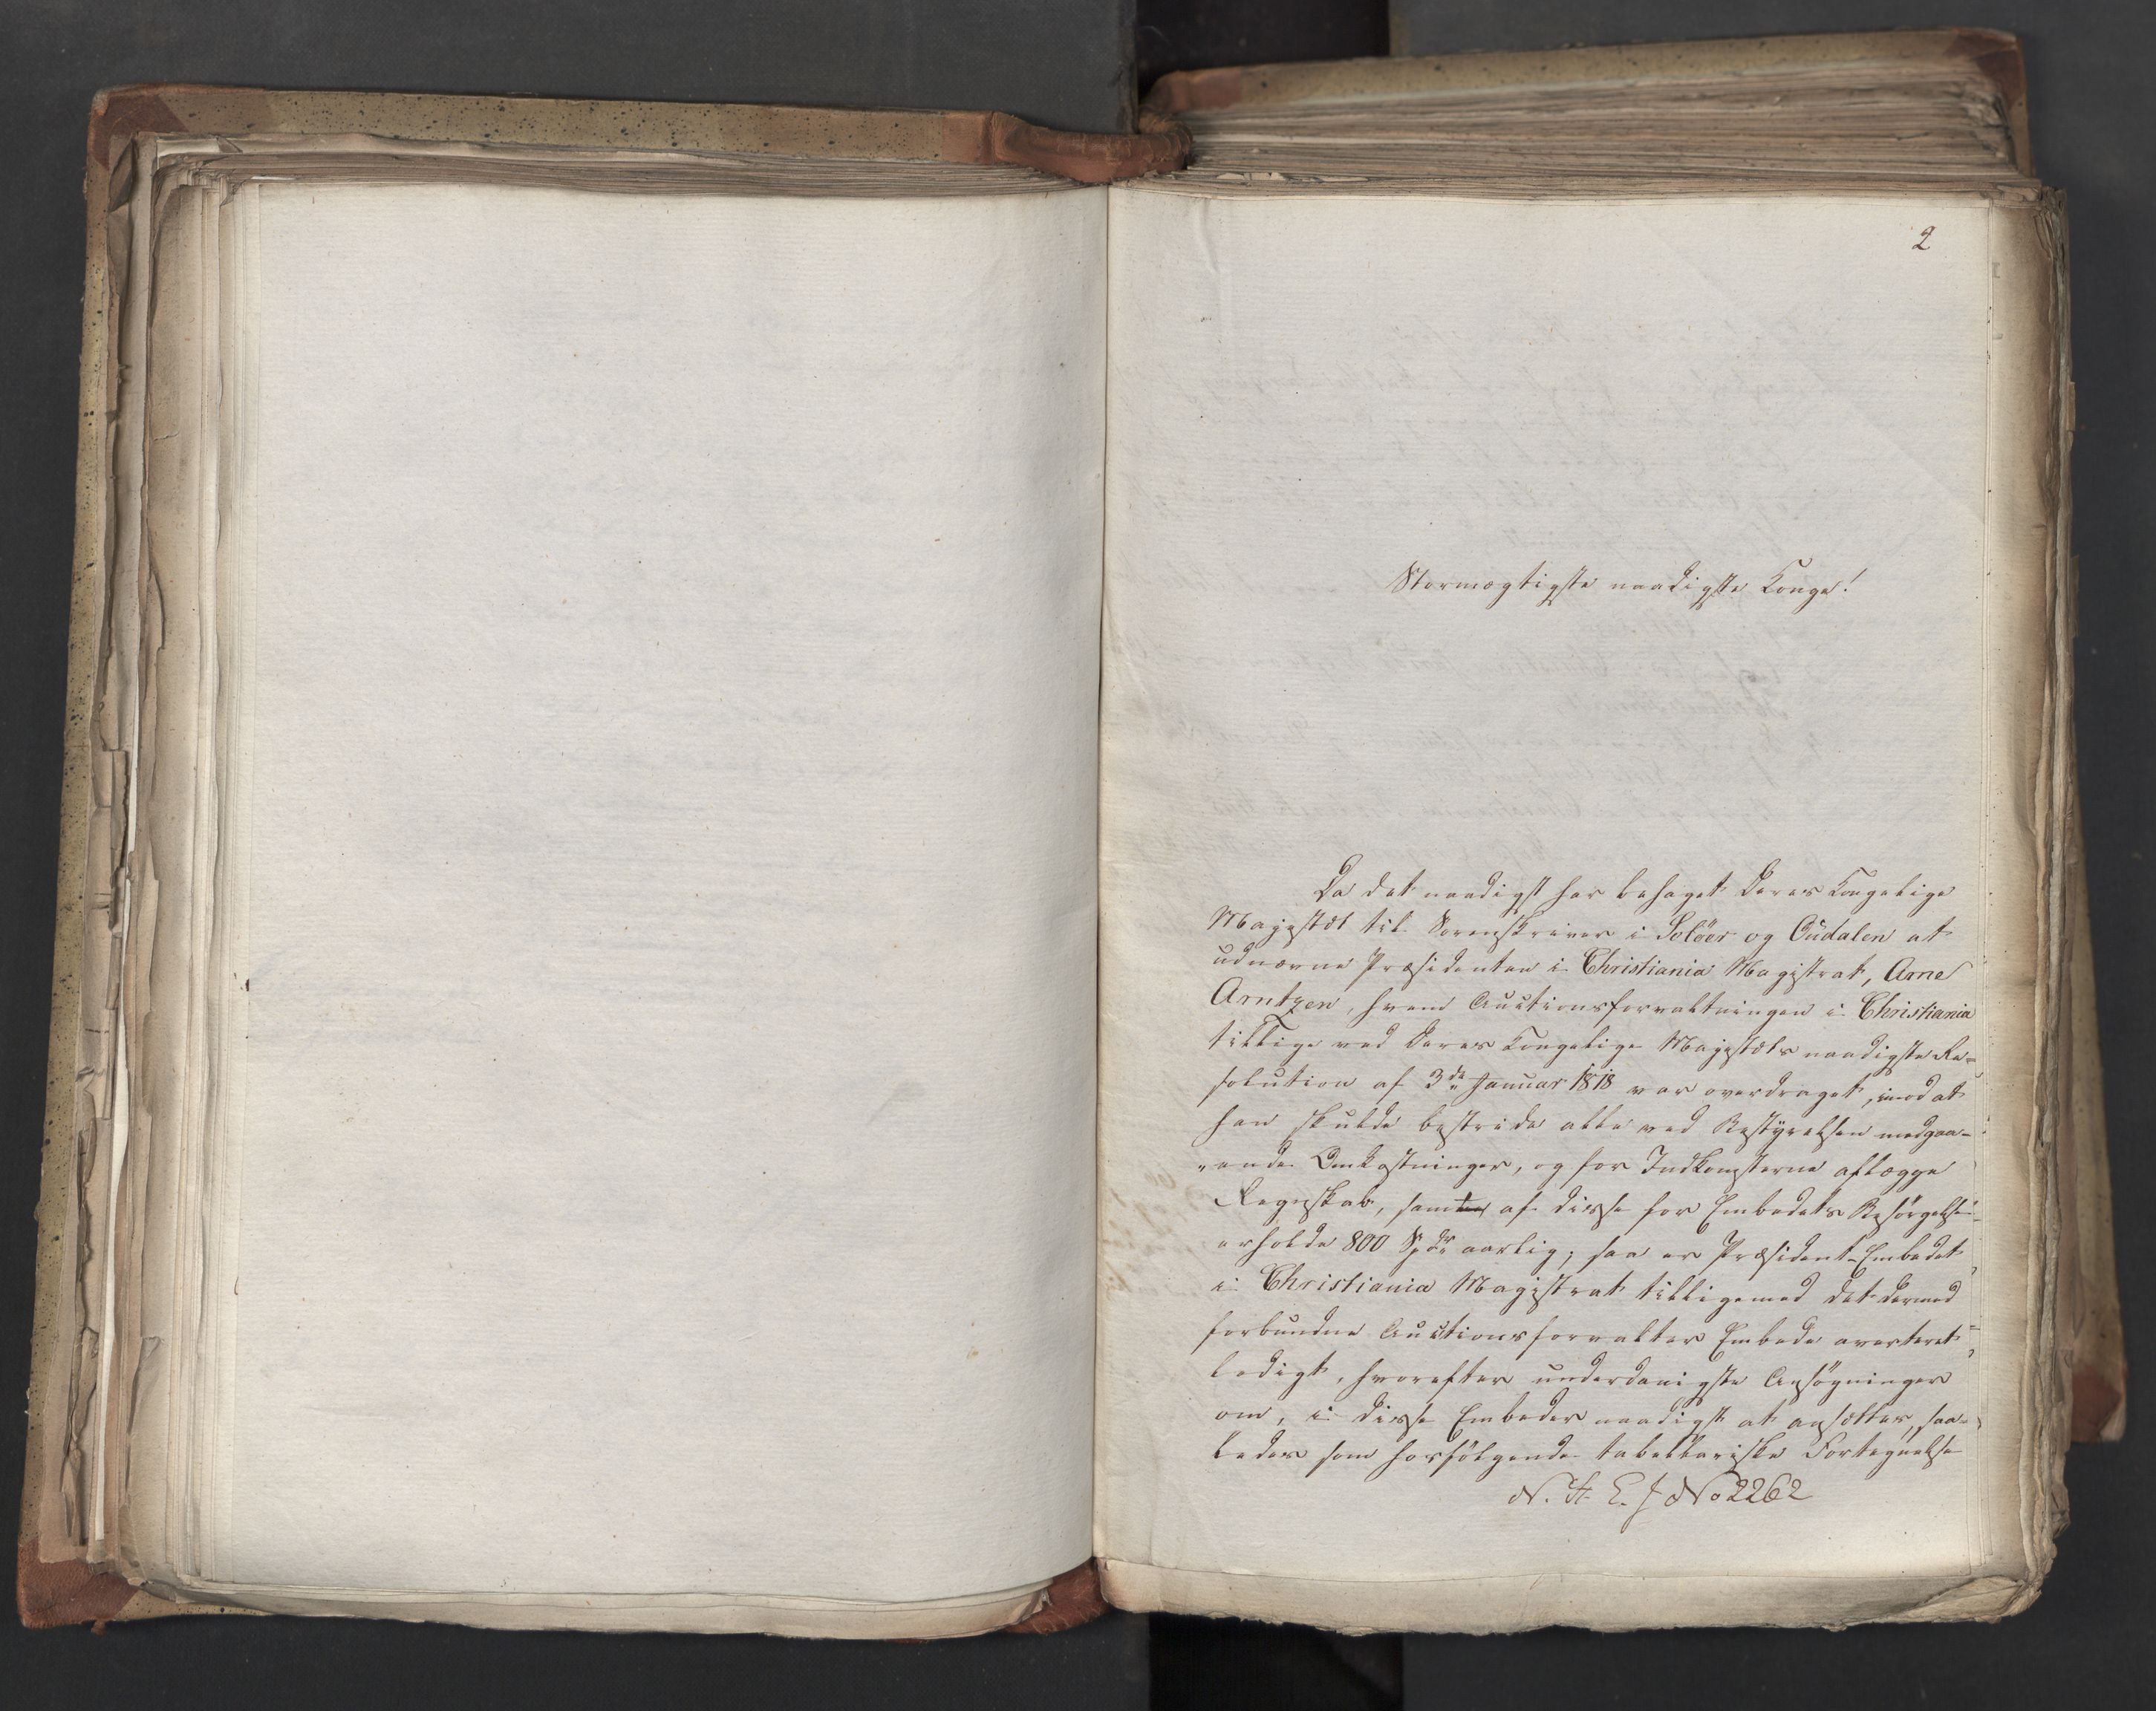 2
Stormægtigste naadigste Konge!
Da det naadigst har behaget Deres Kongelige
Majestæt til Sorenskriver i Solöer og Oüdalen at
udnævne Præsidenten i Christiania Magistrat, Arne
Arntzen, hvem Auctionsforvaltningen i Christiania
tillige ved Deres Kongelige Majestæts naadigste Re-
solution af 3die Januar 1818 var overdraget, imod at
han skulde bestride alle ved Bestyrelsen medgaa-
ende Omkostninger, og for Indkomsterne aflægge
Regnskab, samt af disse for Embedets Besörgelse
erholde 800 Spdr aarlig; saa er Præsident-Embedet
i Christiania Magistrat tilligemed det dermed
forbundne Auctionsforvalter Embede
ledigt, hvorefter underdanigste Ansögninger
om, i disse Embeder naadigst at ansættes, saa-
ledes som hosfölgende tabellariske Fortegnelse
N. A. E. J No 2262